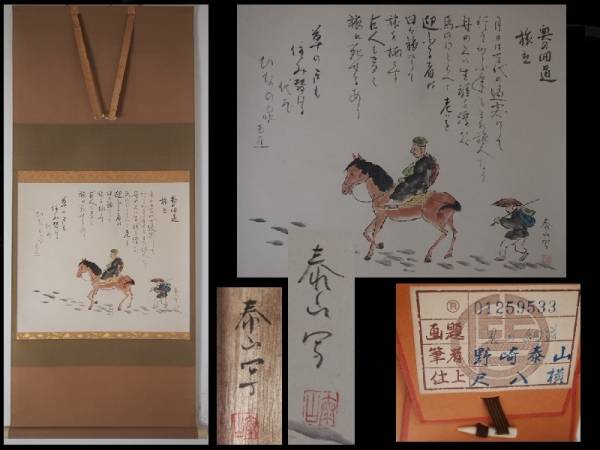 奥の細道
旅立
月日は百代の過客にして
行かふ年も又旅人なり
舟の上に生涯を浮かべ
馬の口とらへて老を
迎ふる者は
日々旅にして
旅を栖とす
古人も多く
旅に死せるあり
草の戸も
住み替る
代ぞ
ひなの家
芭蕉
泰山写
泰山写
泰山写
R
01259533
画題
筆者 野崎泰山
仕上 尺八横